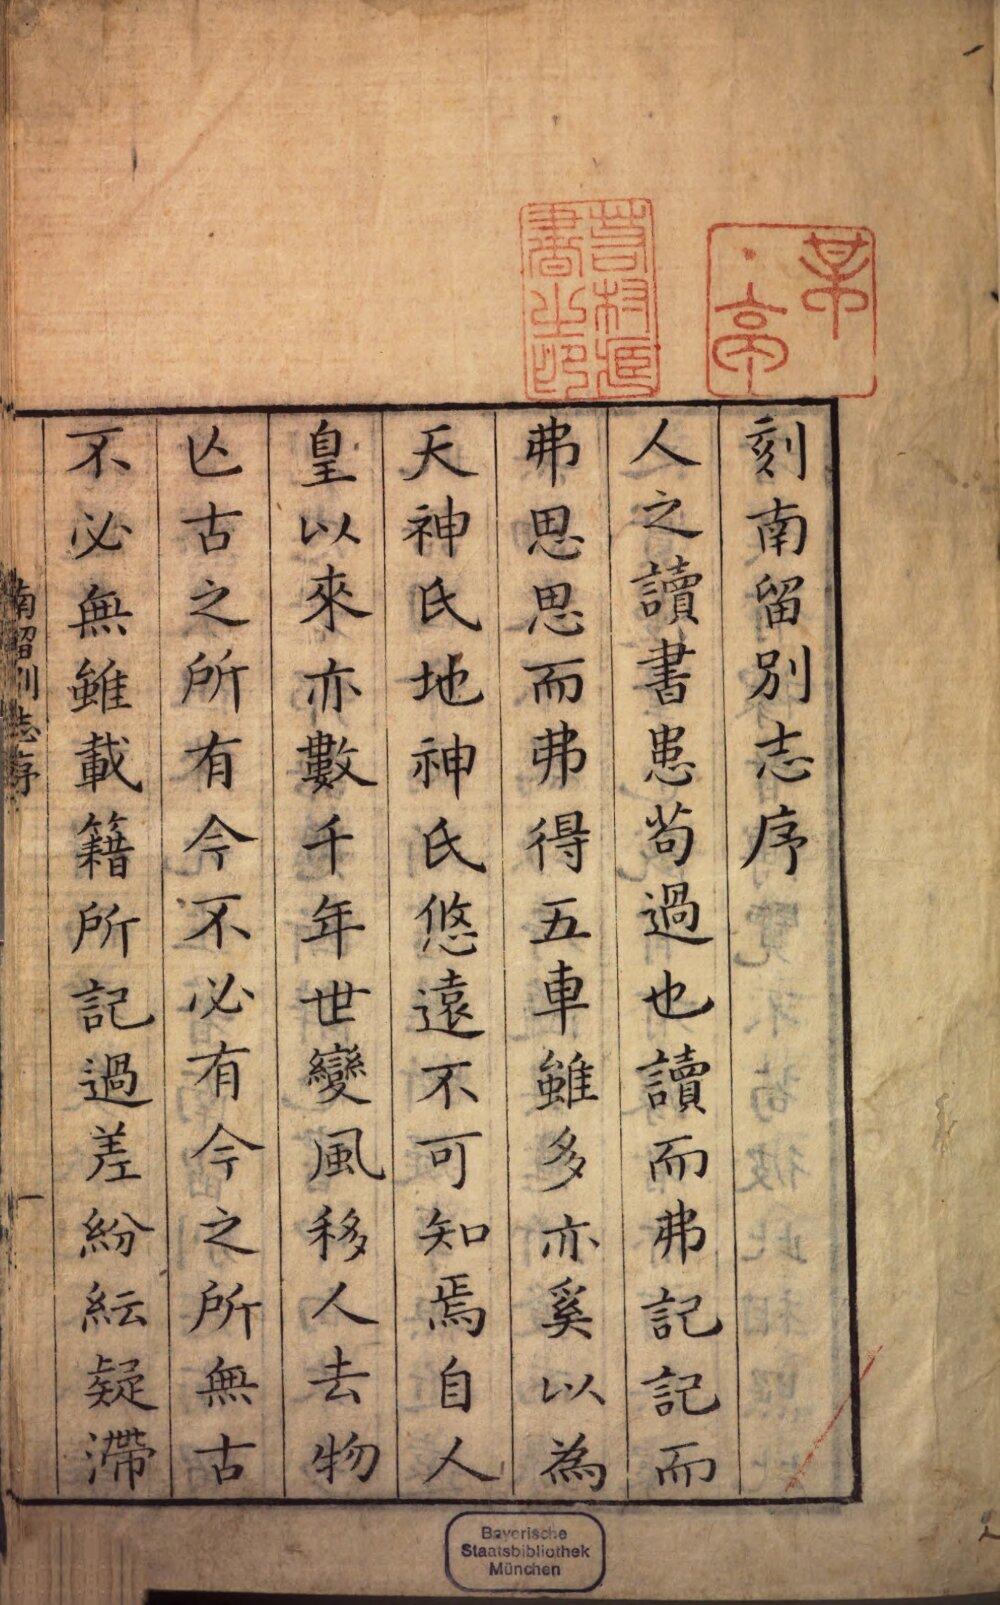 刻南留別志序
人之讀書患苟過也讀而弗記記而
弗思思而弗得五車雖多亦奚以為
天神氏地神氏悠遠不可知焉自人
皇以來亦數千年世變風移人去物
亾古之所有今不必有今之所無古
不必無雖載籍所記過差紛紜疑滯
南留別志序
一
某亭
書之印
Bayerische
Staatsbibliothek
München